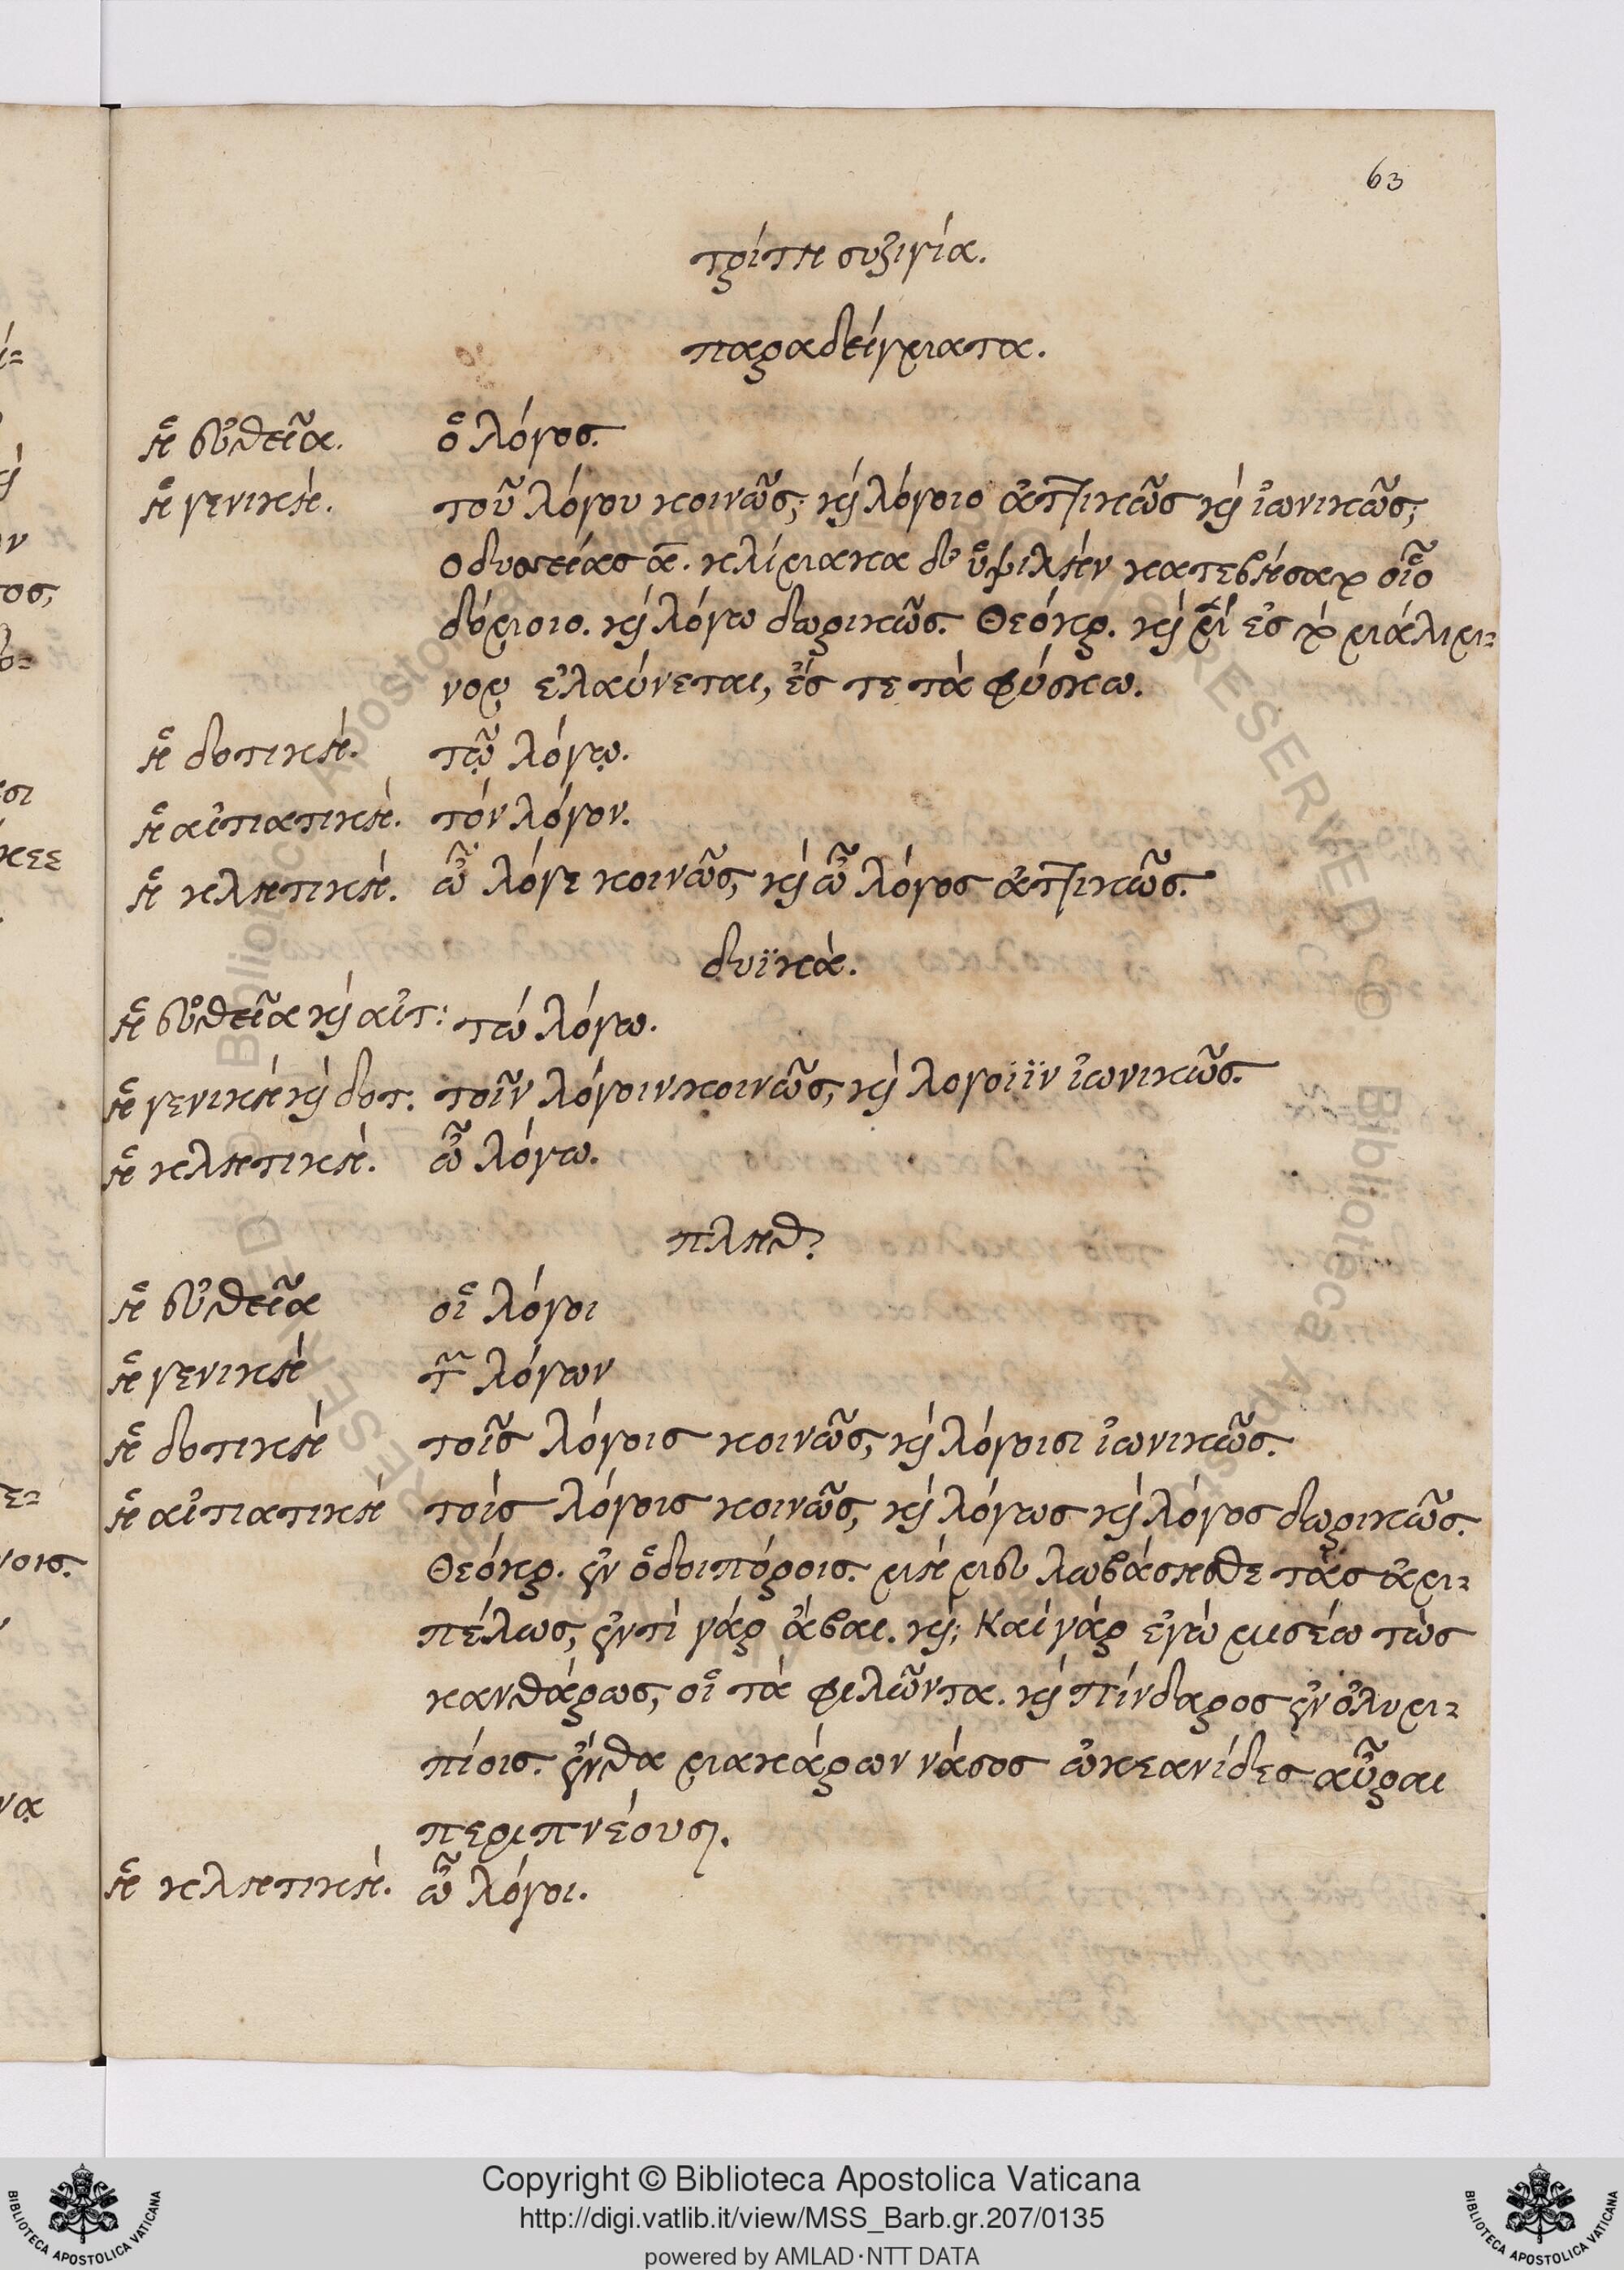 63
τρίτη συζιγία.
παραδείγματα.
ἡ εὐθεῖα. ὁ λόγος.
ἡ γενική. τοῦ λόγου κοινῶς, καὶ λόγοιο ἀττικῶς καὶ ἰωνικῶς,
οδυσσείας α. κλίμακα δ' ὑψιλὴν κατεβήσατο οἷο
δόμοιο. καὶ λόγω δωρικῶς. Θεόκρ. καὶ ἐς τὸ μάλιμ-
νον ἐλαύνεται, ἔς τε τὰ φύσκω.
ἡ δοτική. τῷ λόγῳ.
ἡ αἰτιατική. τόν λόγον.
ἡ κλητική. ὦ λόγε κοινῶς, καὶ ὦ λόγος ἀττικῶς.
δυϊκά.
ἡ εὐθεῖα καὶ αἰτ: τώ λόγω.
ἡ γενική καὶ δοτ. τοῖν λόγοιν κοινῶς, καὶ λογοιϊν ἰωνικῶς.
ἡ κλητική. ὦ λόγω.
πληθ.
ἡ εὐθεῖα οἱ λόγοι
ἡ γενική τῶν λόγων
ἡ δοτική τοῖς λόγοις κοινῶς, καὶ λόγοισι ἰωνικῶς.
ἡ αἰτιατική τοίς λόγοις κοινῶς, καὶ λόγως καὶ λόγος δωρικῶς.
Θεόκρ. ἐν ὁδοιπόροις. μή μευ λωβάσησθε τὰς ἀμ-
πέλως, ἐντὶ γάρ ἄβαι. καὶ; Καί γάρ ἐγὼ μισέω τὼς
κανθάρως, οἱ τὰ φιλῶντα. καὶ πίνδαρος ἐν ὀλυμ-
πίοις. ἔνθα μακάρων νάσος ὠκεανίδες αὖραι
περιπνέουσι.
ἡ κλητική. ὦ λόγοι.
Copyright © Biblioteca Apostolica Vaticana
http://digi.vatlib.it/view/MSS_Barb.gr.207/0135
powered by AMLAD·NTT DATA